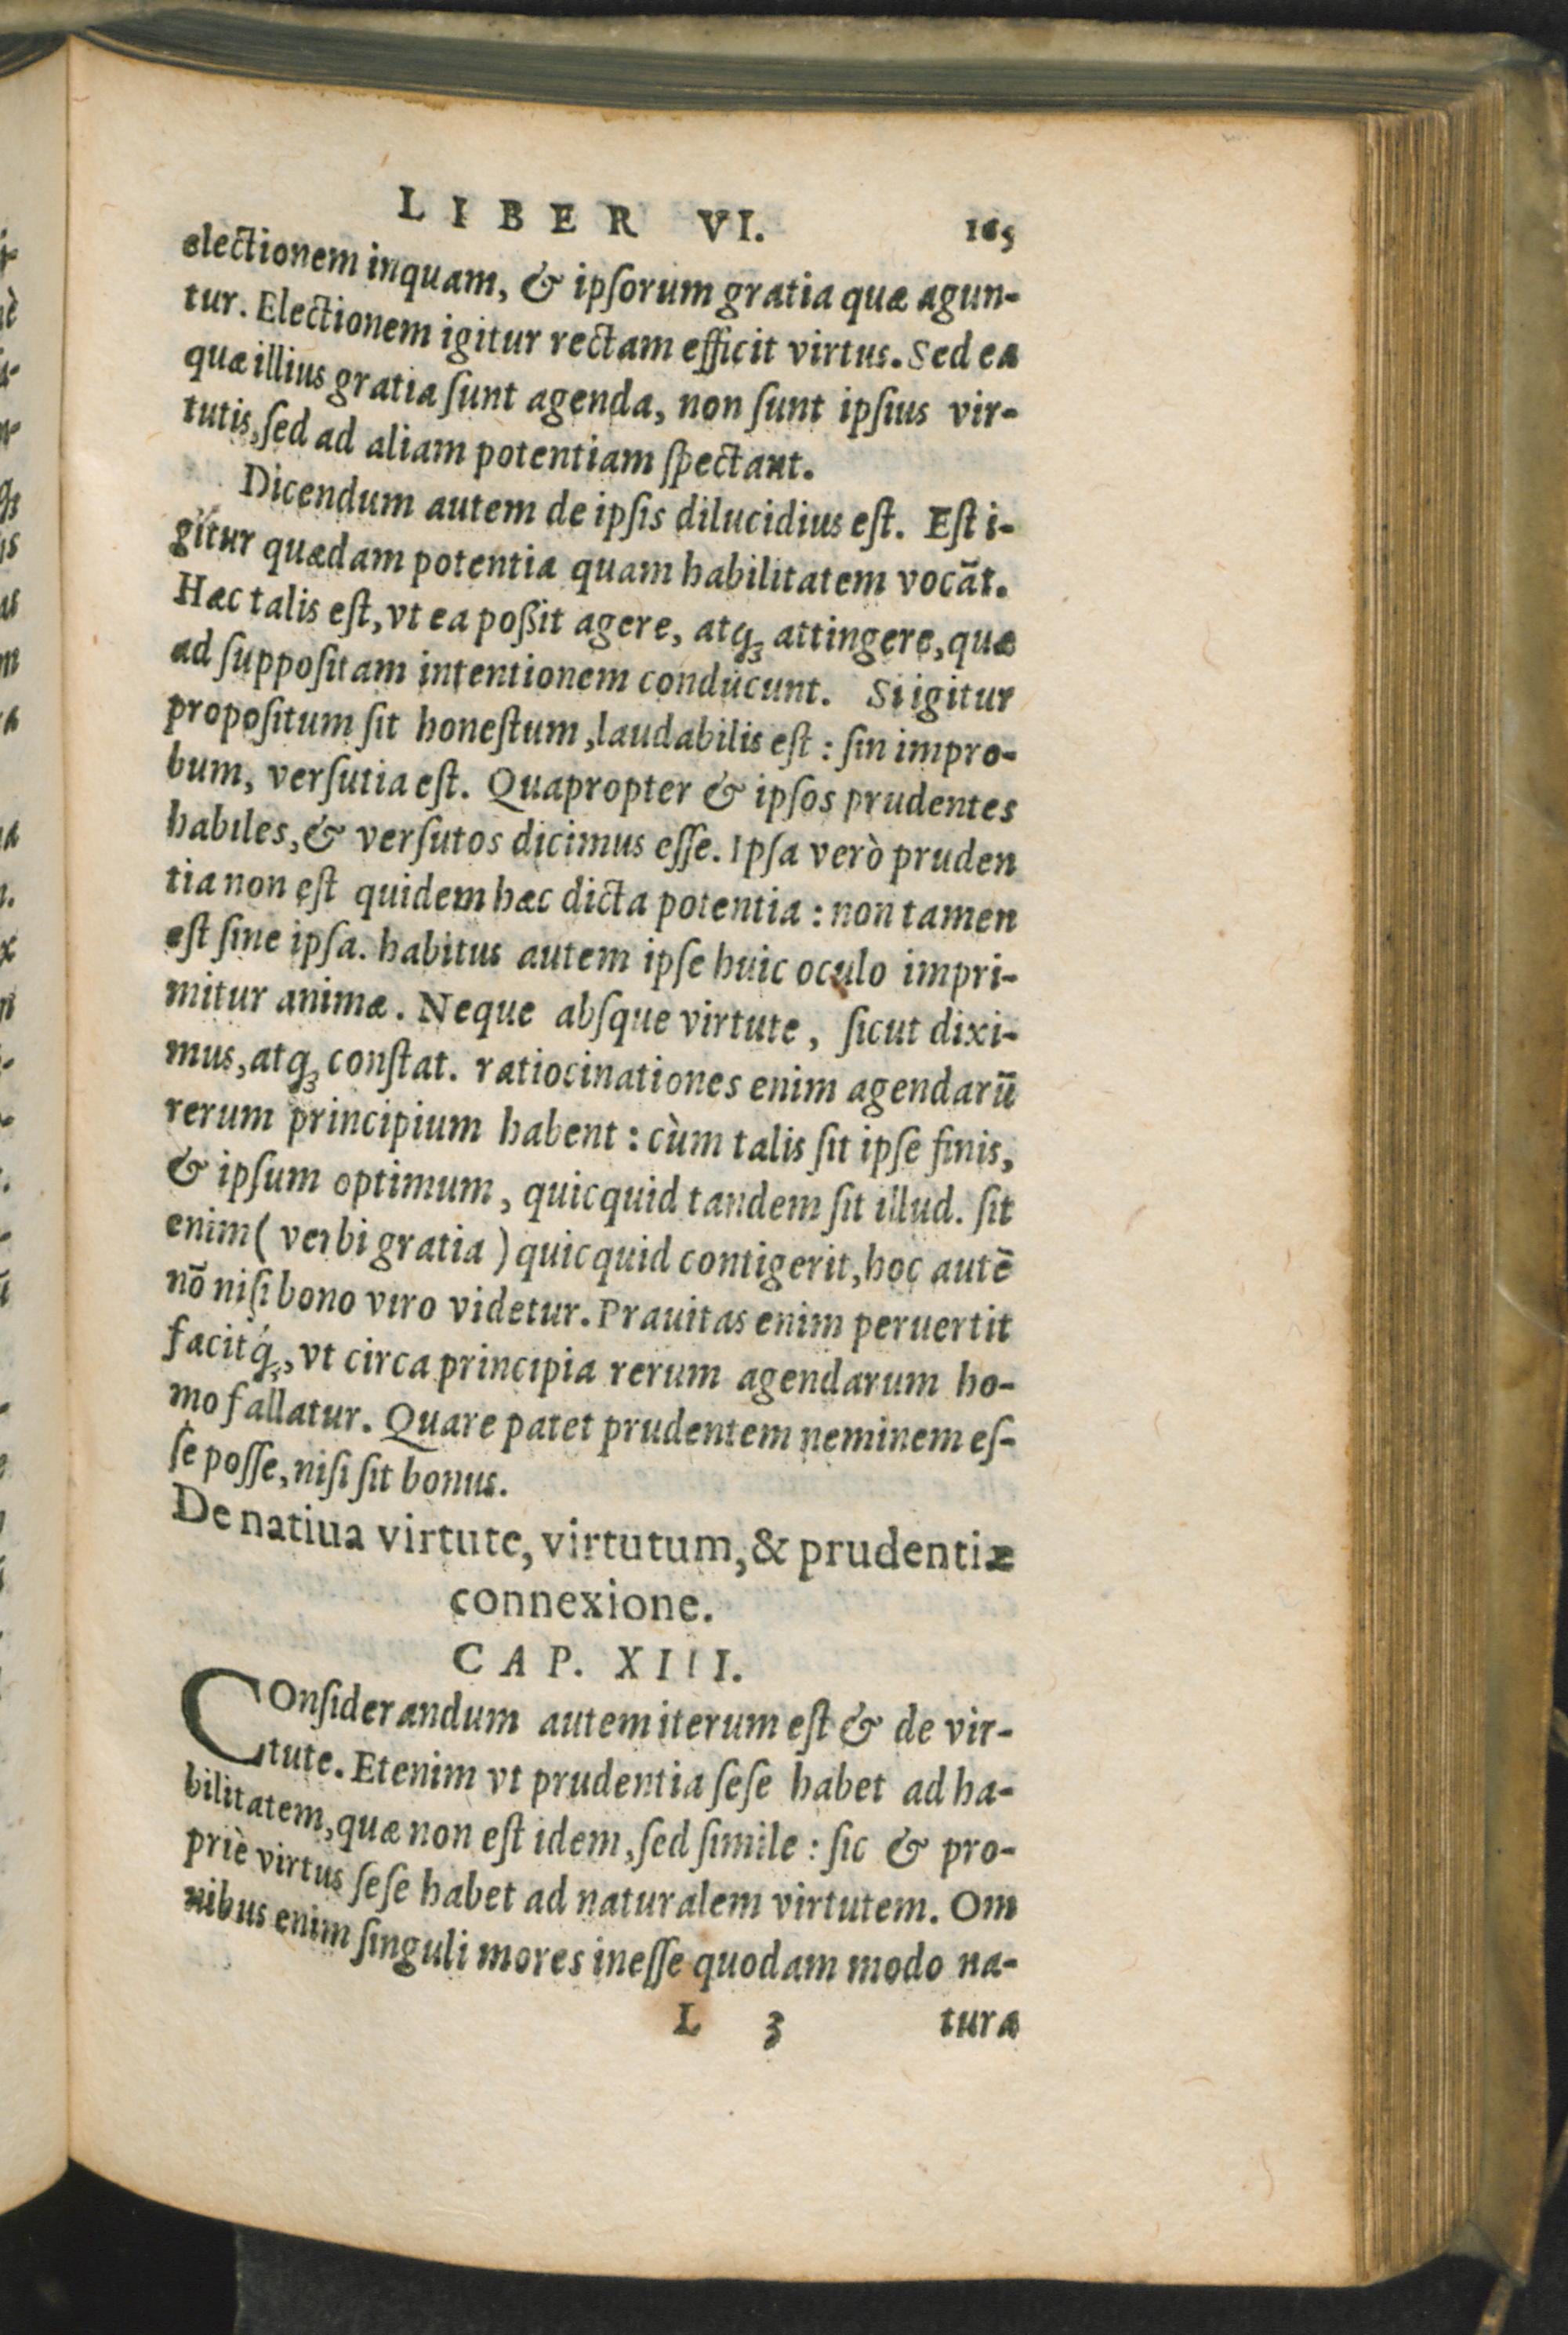 LIBER VI. 165
electionem inquam, & ipſorum gratia quæ agun-
tur. Electionem igitur rectam efficit virtus. Sed ea
quæ illius gratia ſunt agenda, non ſunt ipſius vir-
tutis, ſed ad aliam potentiam ſpectant.
Dicendum autem de ipſis dilucidius eſt. Eſt i-
gitur quædam potentia quam habilitatem vocãt.
Hæc talis eſt, vt ea poßit agere, atqꝫ attingere, quæ
ad ſuppoſitam intentionem conducunt. Si igitur
propoſitum ſit honeſtum, laudabilis eſt : ſin impro-
bum, verſutia eſt. Quapropter & ipſos prudentes
habiles, & verſutos dicimus eſſe. Ipſa verò pruden
tia non eſt quidem hæc dicta potentia : non tamen
eſt ſine ipſa. habitus autem ipſe huic oculo impri-
mitur animæ. Neque abſque virtute, ſicut dixi-
mus, atqꝫ conſtat. ratiocinationes enim agendarũ
rerum principium habent : cùm talis ſit ipſe finis,
& ipſum optimum, quicquid tandem ſit illud. ſit
enim ( verbi gratia ) quicquid contigerit, hoc autẽ
nõ niſi bono viro videtur. Prauitas enim peruertit
facitq́ꝫ, vt circa principia rerum agendarum ho-
mo fallatur. Quare patet prudentem neminem eſ-
ſe poſſe, niſi ſit bonus.
De natiua virtute, virtutum, & prudentiæ
connexione.
CAP. XIII.
COnſiderandum autem iterum eſt & de vir-
tute. Etenim vt prudentia ſeſe habet ad ha-
bilitatem, quæ non eſt idem, ſed ſimile : ſic & pro-
priè virtus ſeſe habet ad naturalem virtutem. Om
nibus enim ſinguli mores ineſſe quodam modo na-
L 3 tura